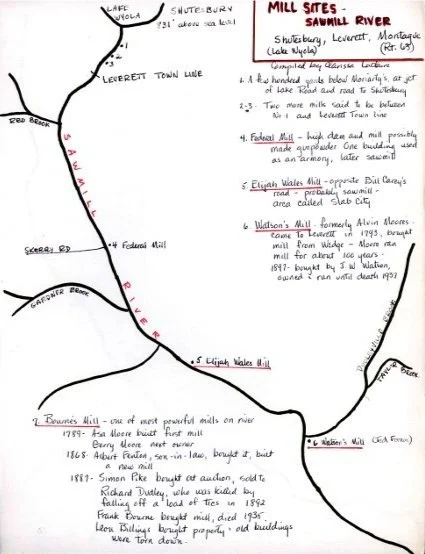 MILL SITES -
SAWMILL RIVER
Shutesbury, Leverett, Montague
(Lake Wyola) (Rt. 63)
Compiled by Clarissa
LAKE
WYOLA
SHUTESBURY
831' above sea level
1
2
3
LEVERETT TOWN LINE
1. A few hundred yards below Moriarty's, at jct
of Lake Road and road to Shutesbury
2-3. Two more mills said to be between
No 1 and Leverett Town line
4. Federal Mill - high dam and mill possibly
made gunpowder One building used
as an armory, later sawmill
5. Elijah Wales Mill - opposite Bill Carey's
road - probably sawmill -
area called Slab City
6. Watson's Mill - formerly Alvin Moores -
came to Leverett in 1793, bought
mill from Wedge - Moore ran
mill for about 100 years -
1897 - bought by J.W. Watson,
owned & run until death 1937
RED BROOK
SAWMILL
RIVER
SKERRY RD
4 Federal Mill
GARDNER BROOK
5 Elijah Wales Mill
BROOK
BROOK
6 Watson's Mill
7. Bourne's Mill - one of most powerful mills on river
1789 - Asa Moore built first mill
Berry Moore next owner
1868 - Albert Fenton, son-in-law, bought it, built
a new mill
1887 - Simon Pike bought at auction, sold to
Richard Dudley, who was killed by
falling off a load of ties in 1892
Frank Bourne bought mill, died 1935.
Leon Billings bought property - old buildings
were torn down.